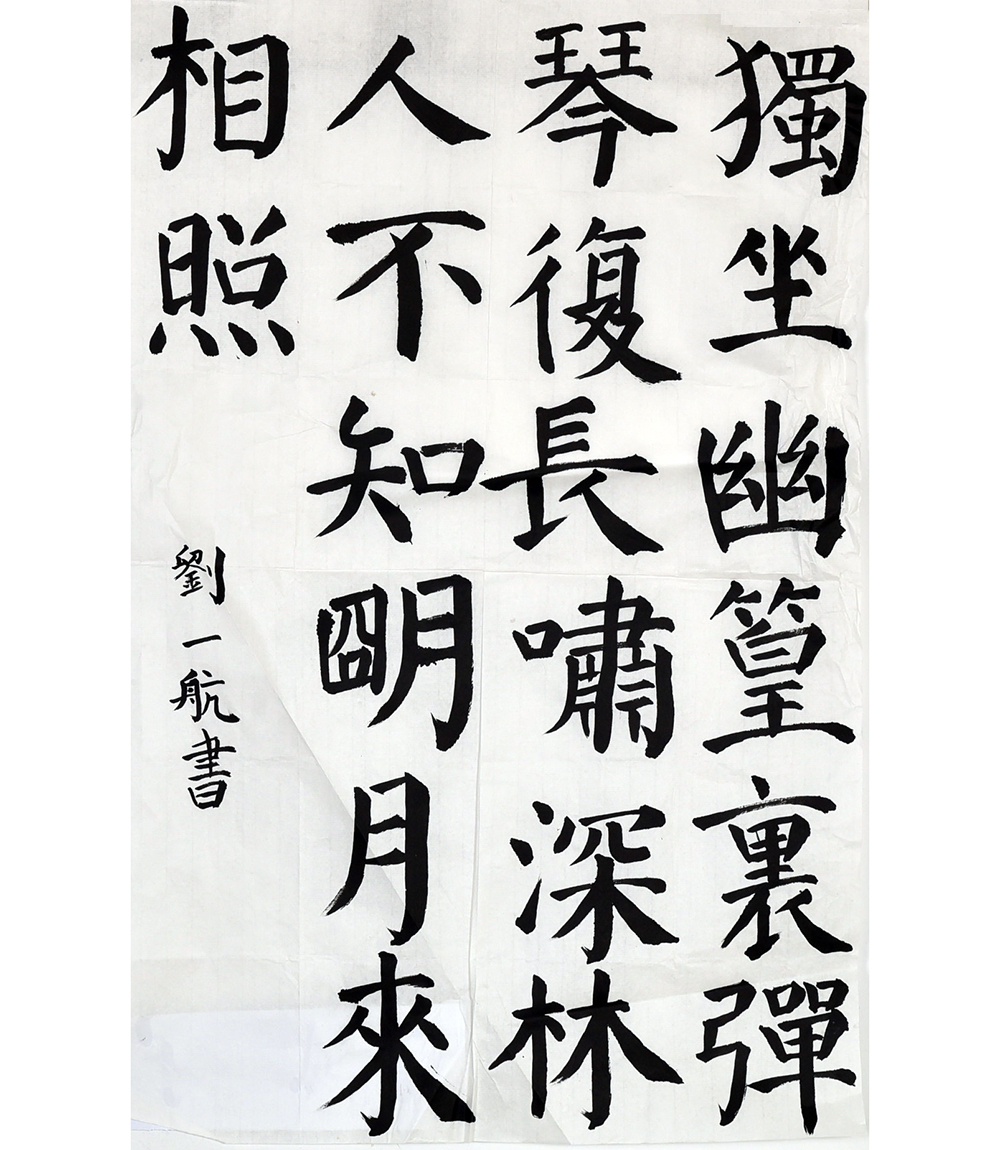 獨坐幽篁裏彈
琴復長嘯深林
人不知朙月來
相照
劉一航書